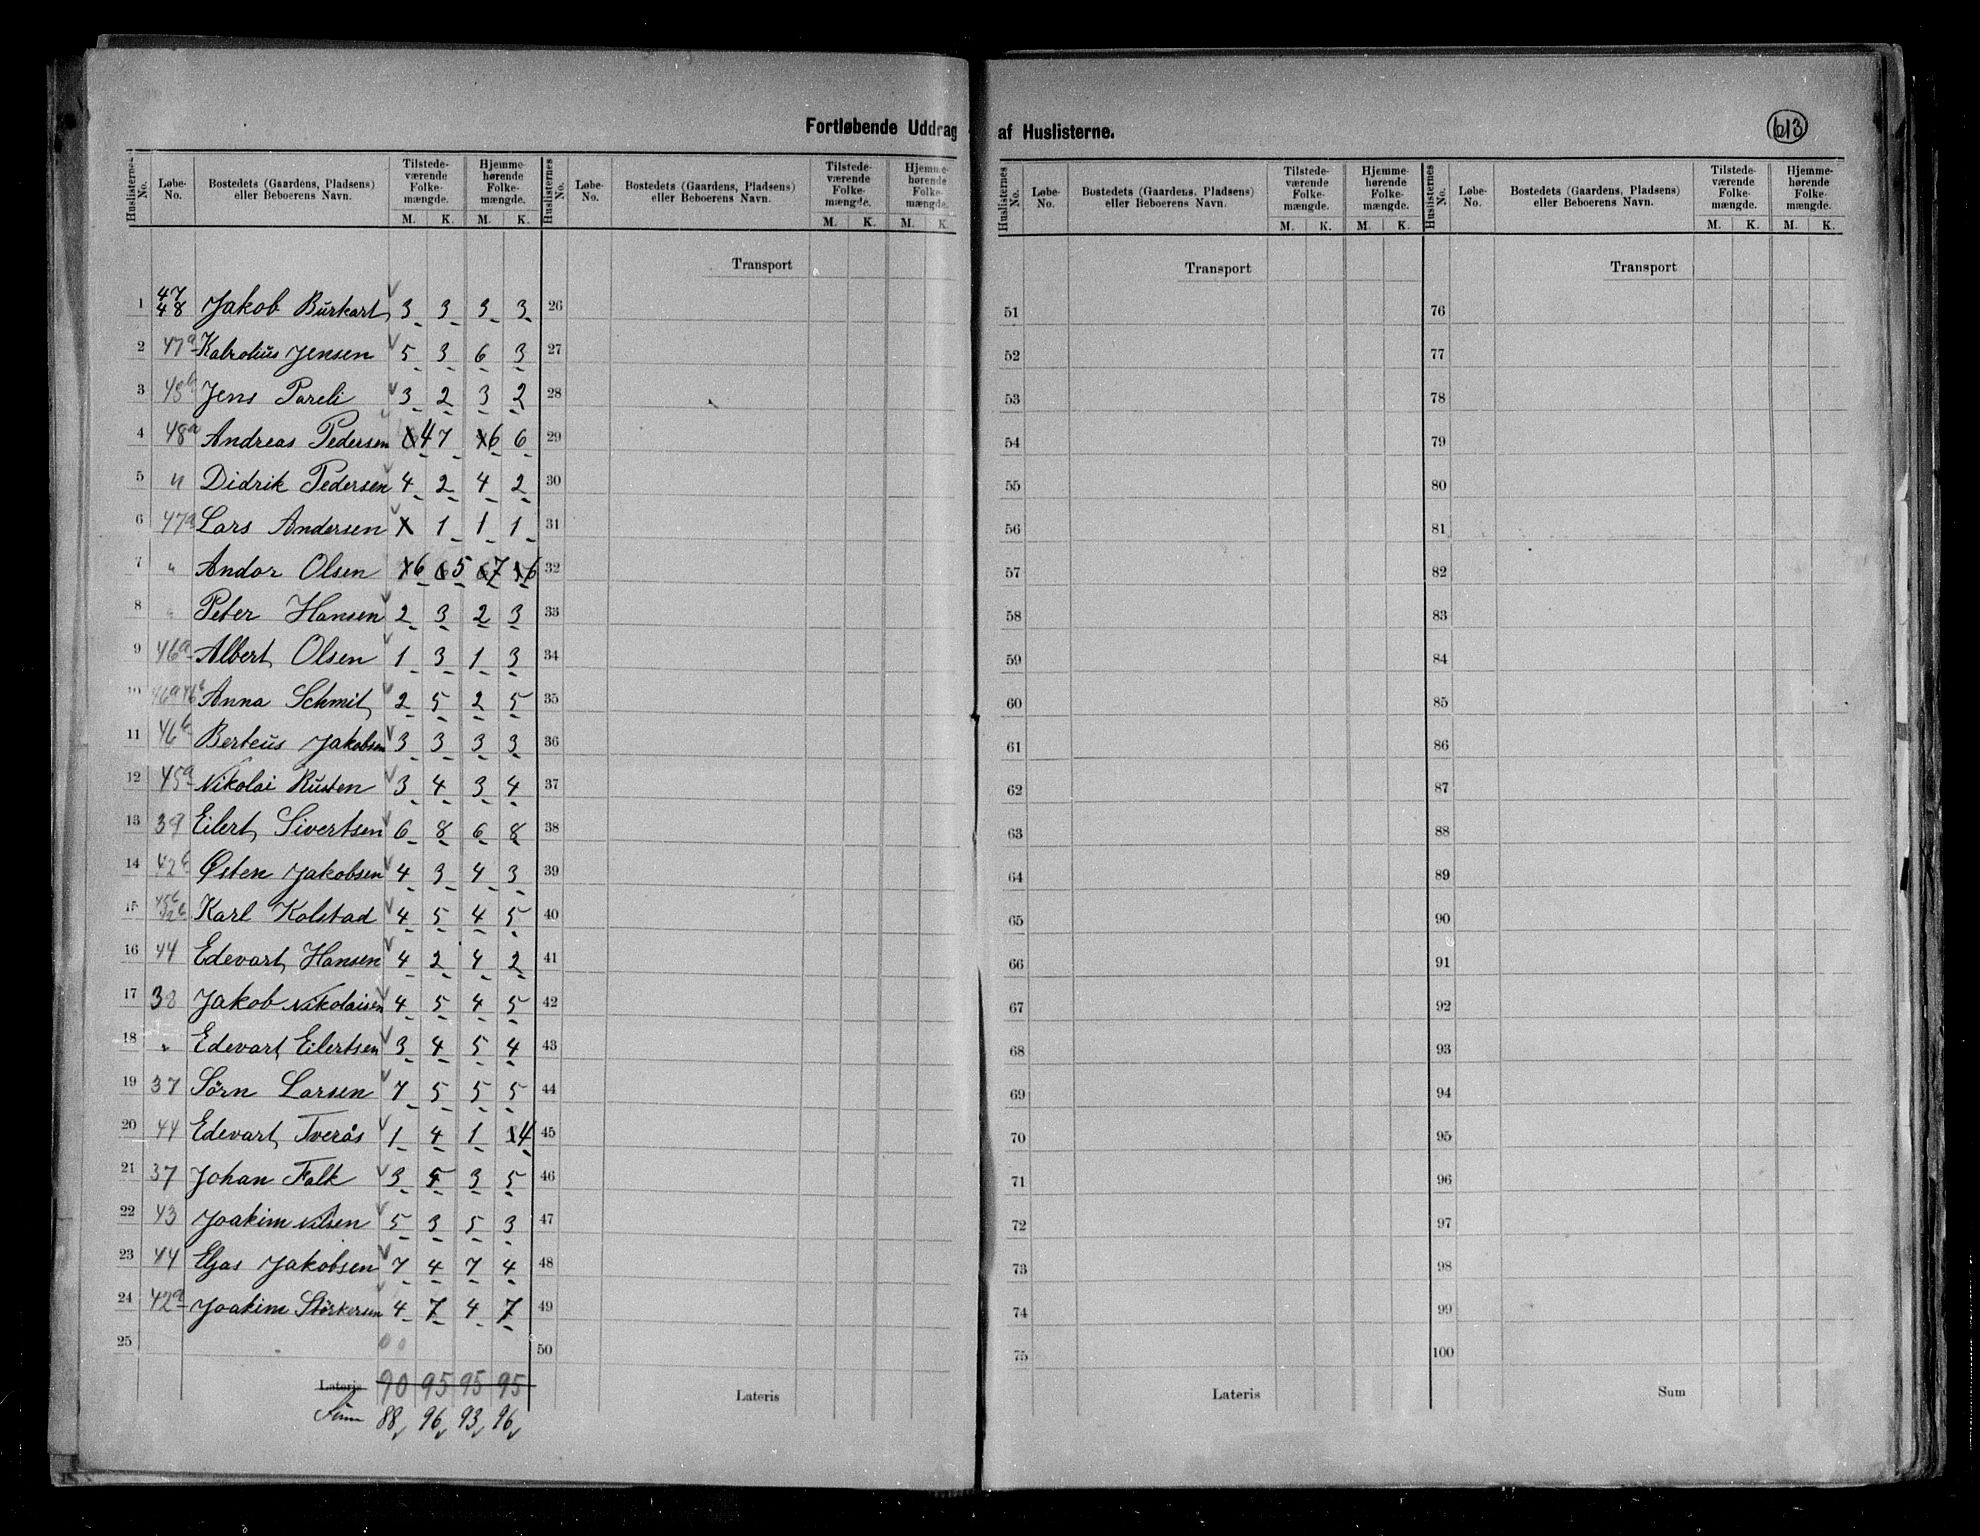 Fortløbende Uddrag af Huslisterne.
613
Huslisternes No. | Løbe-No. | Bostedets (Gaardens, Pladsens) eller Beboerens Navn. | Tilstedeværende Folkemængde. M. K. | Hjemmehørende Folkemængde. M. K.
Huslisternes No. | Løbe-No. | Bostedets (Gaardens, Pladsens) eller Beboerens Navn. | Tilstedeværende Folkemængde. M. K. | Hjemmehørende Folkemængde. M. K.
Huslisternes No. | Løbe-No. | Bostedets (Gaardens, Pladsens) eller Beboerens Navn. | Tilstedeværende Folkemængde. M. K. | Hjemmehørende Folkemængde. M. K.
Huslisternes No. | Løbe-No. | Bostedets (Gaardens, Pladsens) eller Beboerens Navn. | Tilstedeværende Folkemængde. M. K. | Hjemmehørende Folkemængde. M. K.
Transport Transport Transport
1 47 48 Jakob Burkart 3 3 3 3 26 51 76
2 47a Kalrolius Jensen 5 3 6 3 27 52 77
3 48b Jens Pareli 3 2 3 2 28 53 78
4 48a Andreas Pedersen 4 7 6 6 29 54 79
5 " Didrik Pedersen 4 2 4 2 30 55 80
6 47a Lars Andersen 1 1 1 31 56 81
7 " Andor Olsen 6 5 7 6 32 57 82
8 " Peter Hansen 2 3 2 3 33 58 83
9 46a Albert Olsen 1 3 1 3 34 59 84
10 46a Anna Schmit 2 5 2 5 35 60 85
11 46b Berteus Jakobsen 3 3 3 3 36 61 86
12 45a Nikolai Rusten 3 4 3 4 37 62 87
13 39 Eilert Sivertsen 6 8 6 8 38 63 88
14 42b Østen Jakobsen 4 3 4 3 39 64 89
15 Karl Kolstad 4 5 4 5 40 65 90
16 44 Edevart Hansen 4 2 4 2 41 66 91
17 38 Jakob Nikolaisen 4 5 4 5 42 67 92
18 " Edevart Eilertsen 3 4 5 4 43 68 93
19 37 Sørn Larsen 7 5 5 5 44 69 94
20 44 Edevart Tverås 1 4 1 4 45 70 95
21 37 Johan Falk 3 5 3 5 46 71 96
22 43 Joakim Nilsen 5 3 5 3 47 72 97
23 44 Eljas Jakobsen 7 4 7 4 48 73 98
24 42a Joakim Størkersen 4 7 4 7 49 74 99
25 50 75 100
Lateris 90 95 95 95 Lateris Lateris Sum
Sum 88 96 93 96